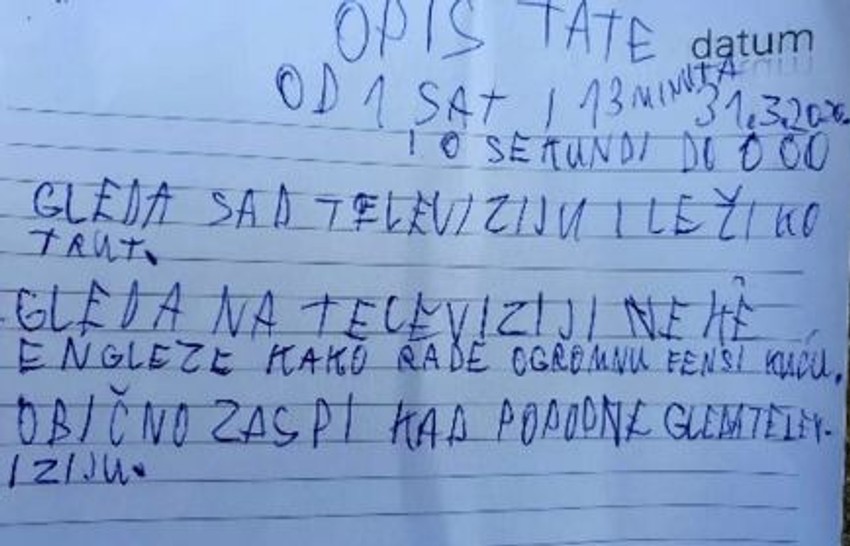 OPIS TATE
datum
OD 1 SAT I 13 MINUTA 31.3.2020.
I O SEKUNDI DO 0 00
GLEDA SAD TELEVIZIJU I LEŽI KO
TRUT.
GLEDA NA TELEVIZIJI NEKE
ENGLEZE KAKO RADE OGROMNU FENSI KUĆU.
OBIČNO ZASPI KAD POPODNE GLEDA TELEV-
IZIJU.